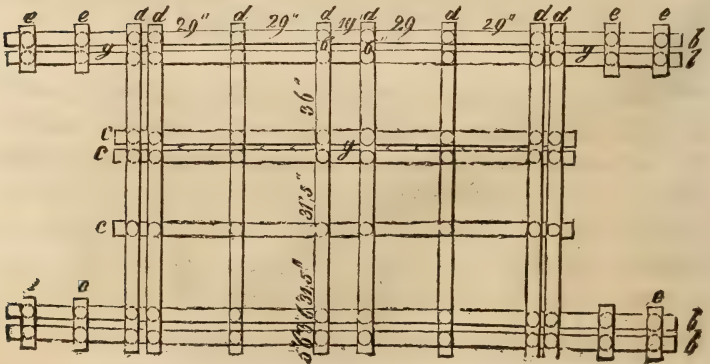 e e d d 29" d 29" d 19" d 29 d 29" d d e e
g 6" 6" g b
b
36"
c
c g
31,5"
c
e e
b
b